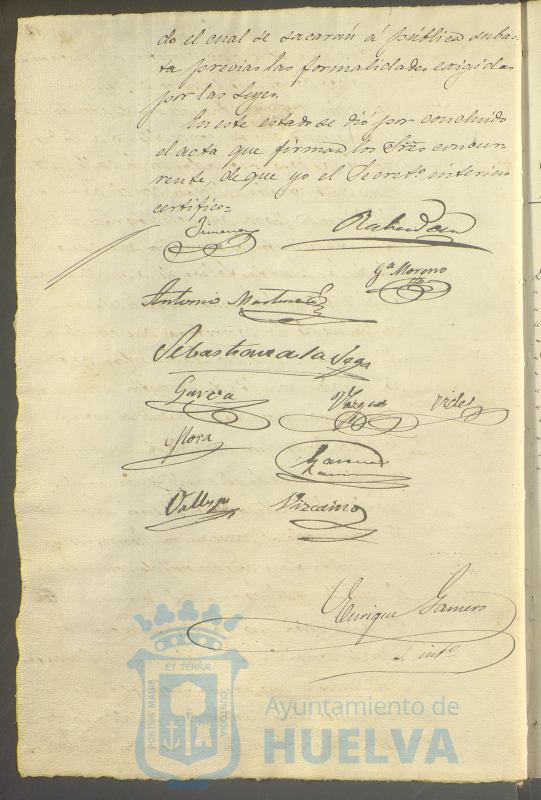 do el cual se sacarán á pública subas-
ta previas las formalidades exigidas
por las Leyes.
En este estado se dió por concluido
el acta que firman los Sres concur-
rente, de que yo el Secreto. interino
certifico=
Jimenez
Gª Moreno
Antonio Martinez
Sebastian de la Vega
Garcia Vazquez Videl
Mora
Vallejo Vizcaino
Enrique Gamero
S. intº
PORTUS MARIS ET TERRÆ CUSTODIA
Ayuntamiento de
HUELVA